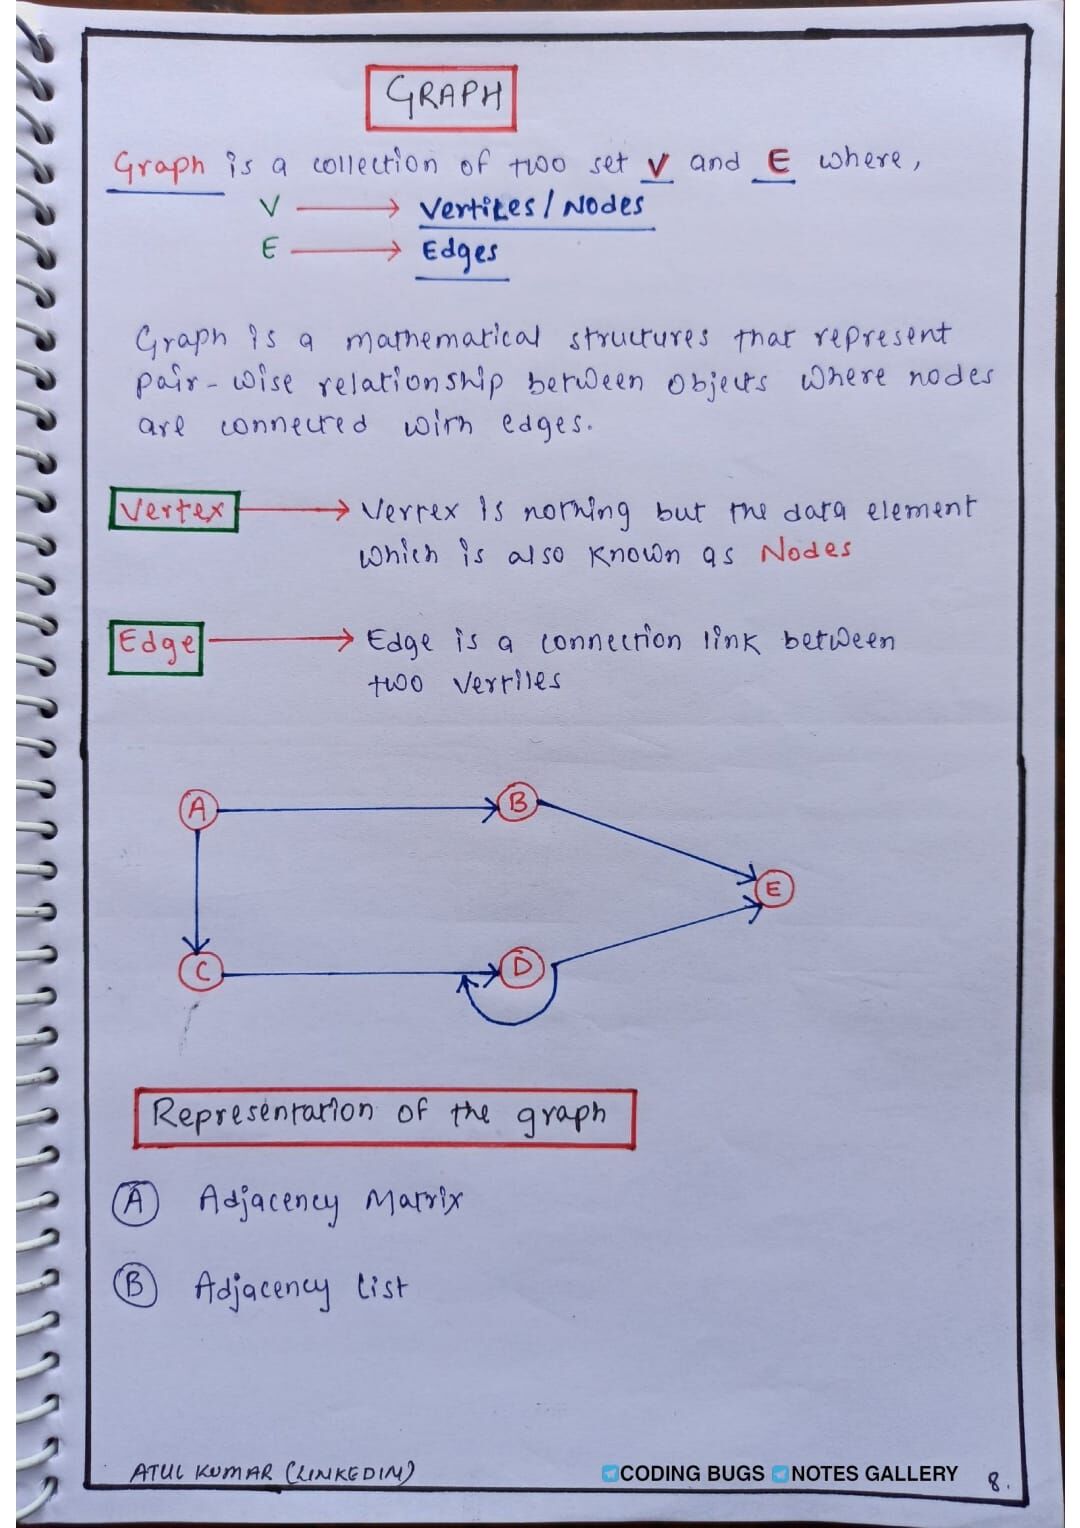 GRAPH
Graph is a collection of two set V and E where,
V → Vertices / Nodes
E → Edges
Graph is a mathematical structures that represent
pair-wise relationship between objects where nodes
are connected with edges.
Vertex → Vertex is nothing but the data element
which is also known as Nodes
Edge → Edge is a connection link between
two vertices
A B
E
C D
Representation of the graph
A Adjacency Matrix
B Adjacency list
ATUL KUMAR (LINKEDIN) CODING BUGS NOTES GALLERY 8.